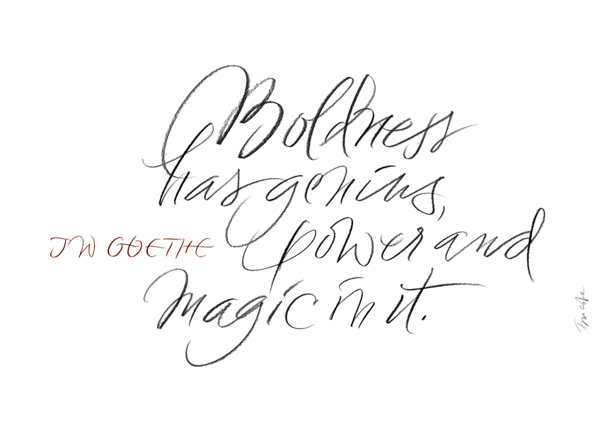 Boldness
has genius,
power and
magic in it.
JW GOETHE